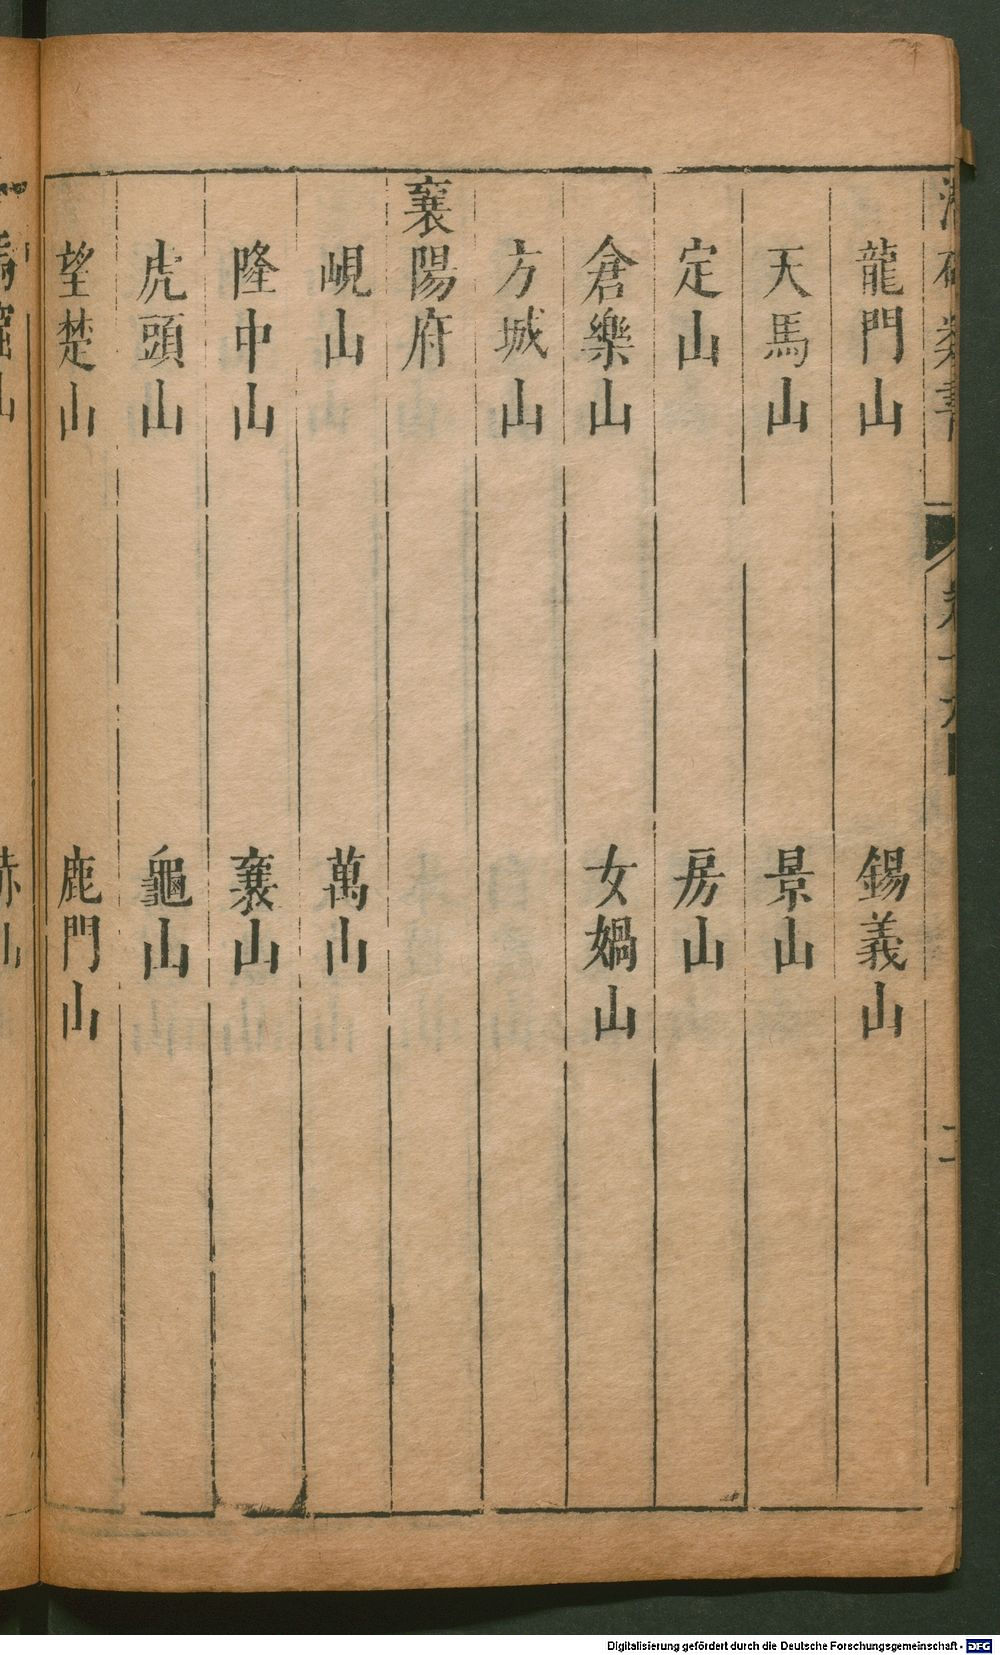 龍門山 錫義山
天馬山 景山
定山 房山
倉樂山 女媧山
方城山
襄陽府
峴山 萬山
隆中山 襄山
虎頭山 龜山
望楚山 鹿門山
Digitalisierung gefördert durch die Deutsche Forschungsgemeinschaft - DFG